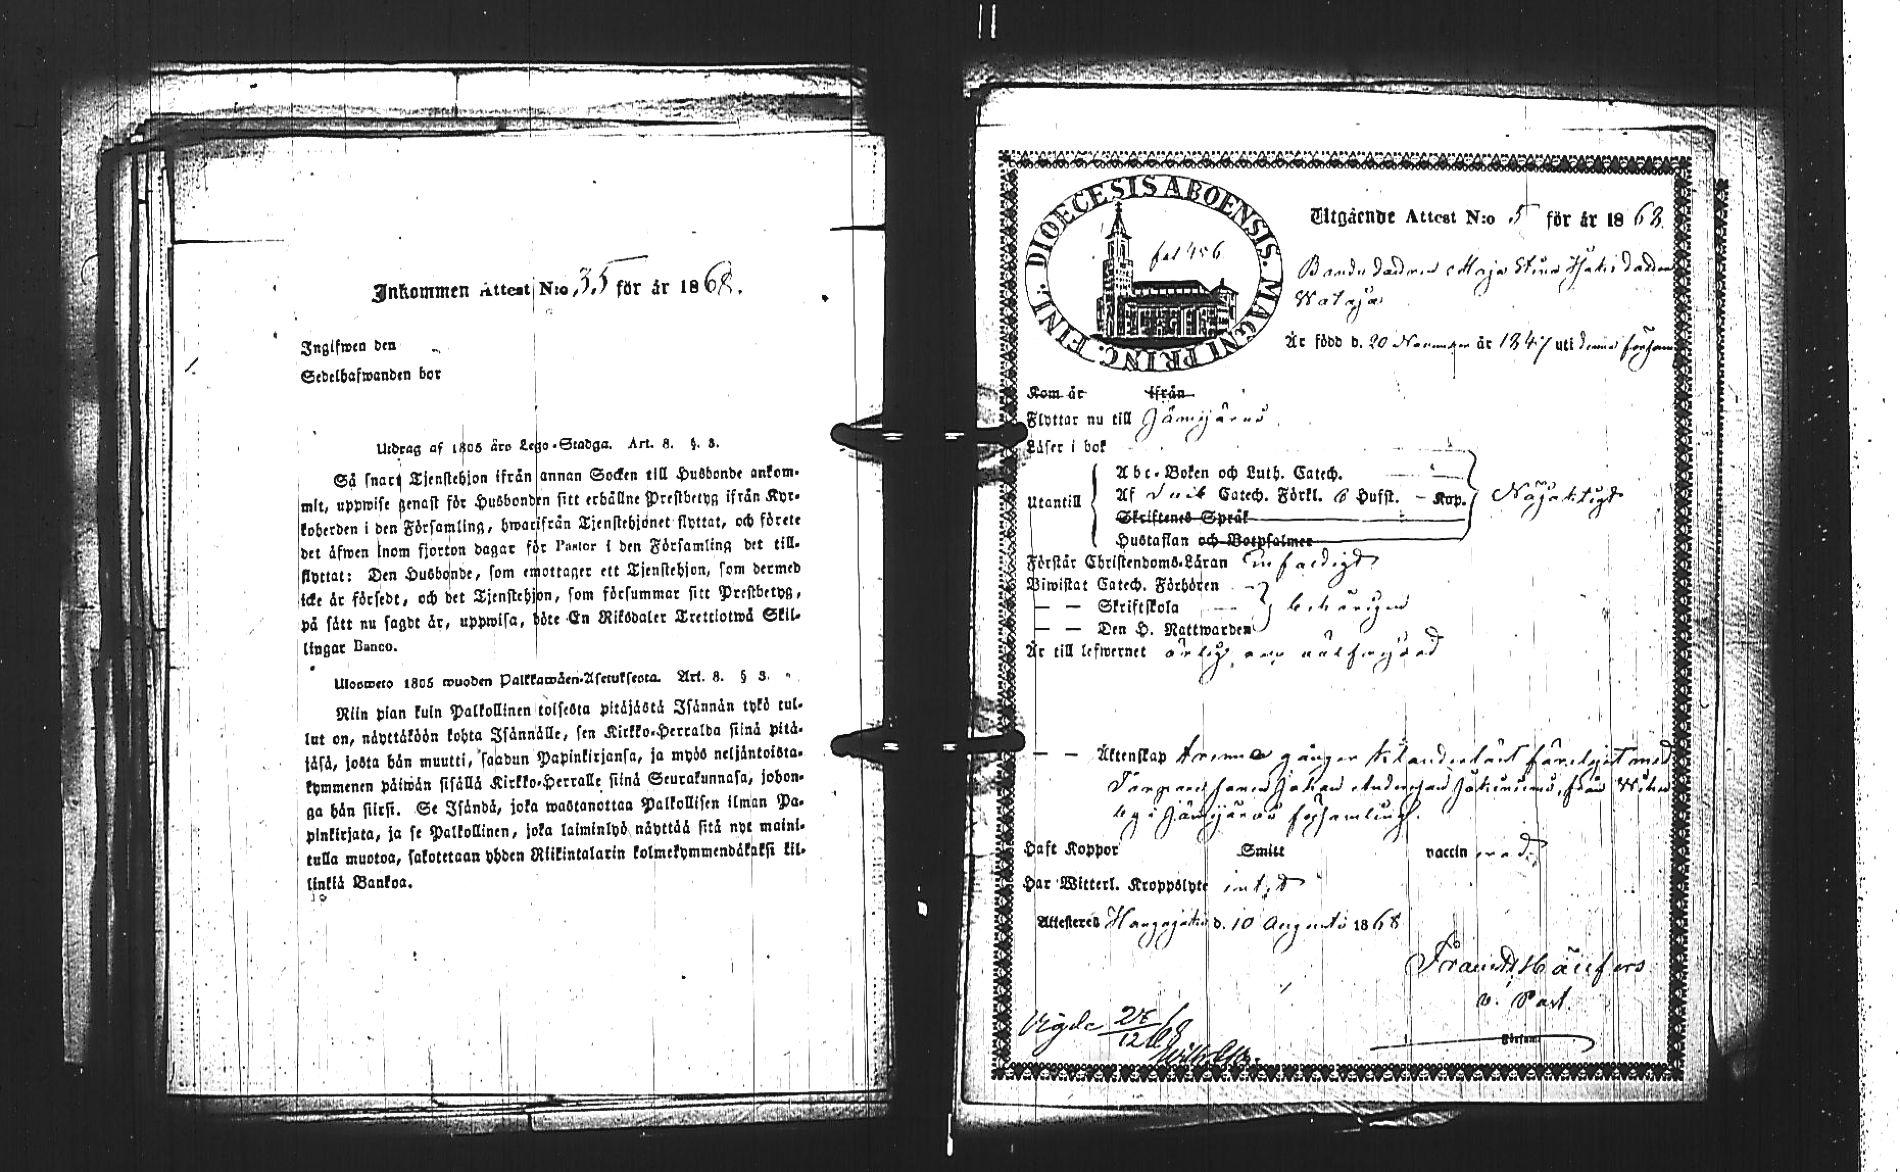 Inkommen Attest N:o 35 för år 1868.
Ingifwen den
Sedelhafwanden bor
Utdrag af 1805 års Lego-Stadga. Art. 8. §. 3.
Så snart Tjenstehjon ifrån annan Socken till Husbonde ankom-
mit, uppwise genast för Husbonden sitt erhållne Prestbetyg ifrån Kyr-
koherden i den Församling, hwarifrån Tjenstehjonet flyttat, och förete
det äfwen inom fjorton dagar för Pastor i den Församling det till-
flyttat: Den Husbonde, som emottager ett Tjenstehjon, som dermed
icke är försedt, och det Tjenstehjon, som försummar sitt Prestbetyg,
på sätt nu sagdt är, uppwisa, böte En Riksdaler Trettiotwå Skil-
lingar Banco.
Ulosweto 1805 wuoden Palkkawäen-Asetuksesta. Art. 8. § 3.
Niin pian kuin Palkollinen toisesta pitäjästä Isännän tykö tul-
lut on, näyttäköön kohta Isännälle, sen Kirkko-Herralda siinä pitä-
jäsä, josta hän muutti, saadun Papinkirjansa, ja myös neljäntoista-
kymmenen päiwän sisällä Kirkko-Herralle siinä Seurakunnasa, johon-
ga hän siirsi. Se Isändä, joka wastanottaa Palkollisen ilman Pa-
pinkirjata, ja se Palkollinen, joka laiminlyö näyttää sitä nyt maini-
tulla muotoa, sakotetaan yhden Riikintalarin kolmekymmendäkaksi kil-
linkiä Bankoa.
DIOECESIS ABOENSIS. MAGNI PRINC. FINL.
fol 456
Utgående Attest N:o 5 för år 1868.
Bondedottren Maja Stina Isaksdotter
Wataja
Är född d. 20 November år 1847 uti denna församl
Kom år ifrån
Flyttar nu till Jämijärwi
Läser i bok
Abc-Boken och Luth. Catech.
Utantill Af Catech. Förkl. 6 Hufst. - Kap. Nöjaktigt
Skriftenes Språk
Hustaflan och Botpsalmer
Förstår Christendoms-Läran Enfaldigt
Biwistat Catech. Förhören
— — Skriftskola behörigen
— — Den H. Nattwarden
Är till lefwernet ärlig och wälfrejdad
— — Äktenskap trenne gånger klanderlöst för lyst med
Johan Andersson från
by i Jämijärwi församling.
Haft Koppor Smitt vaccin med
Har Witterl. Kroppslyte intet
Attesteras Honkajoki d. 10 Augusti 1868
v. Past.
Församl.
Vigde 26/12 68